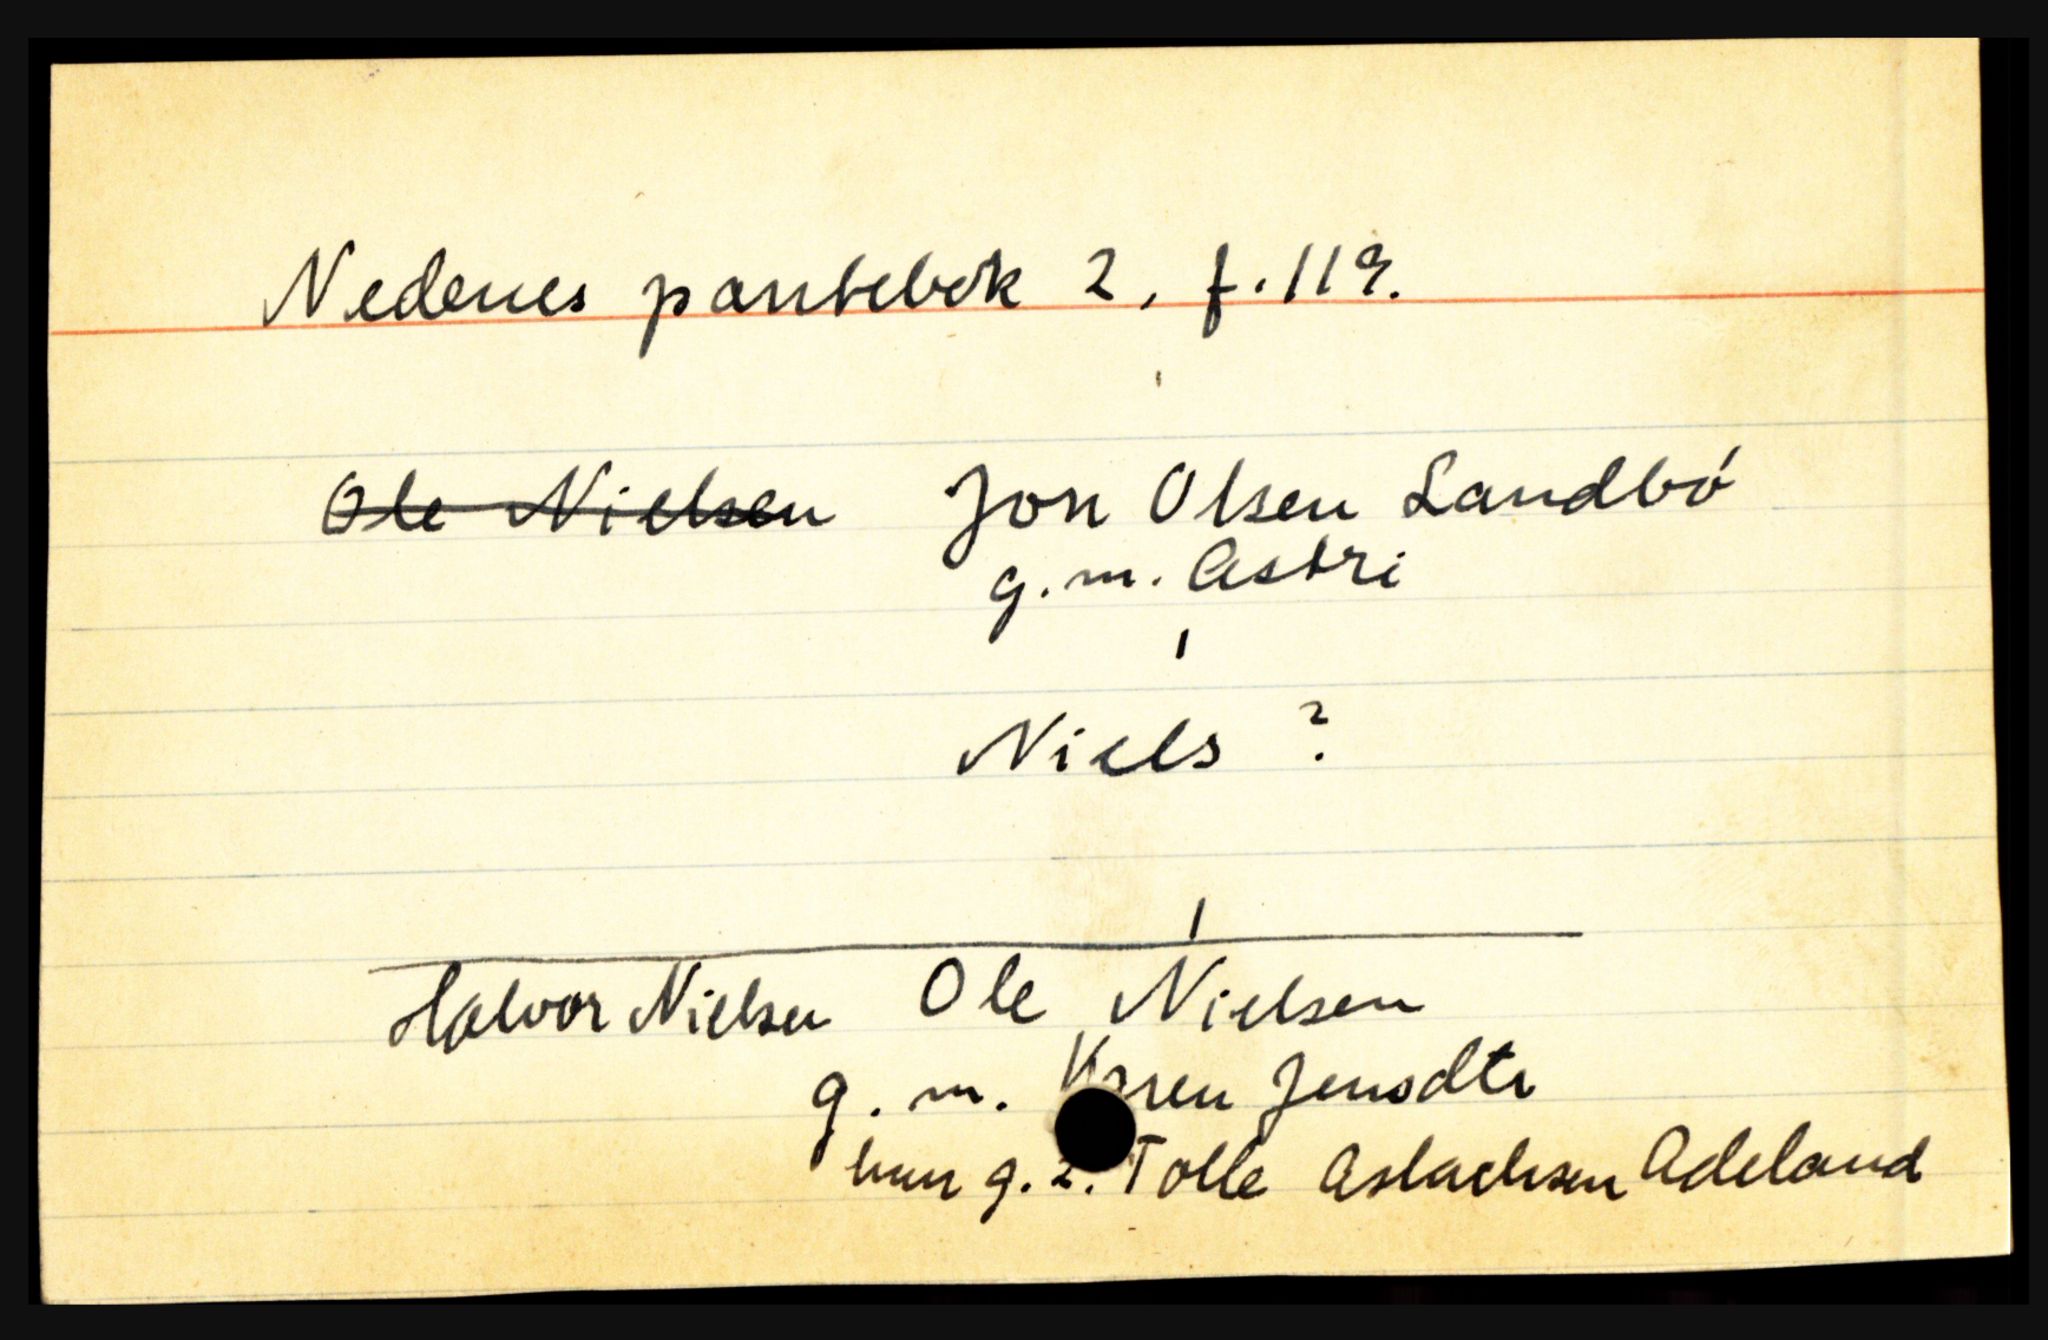 Nedenes pantebok 2, f. 119.
~~Ole Nielsen~~ Jon Olsen Landbö
g. m. Astri
Niels ?
Halvor Nielsen Ole Nielsen
g. m. Karen Jensdtr
hun g. 2. Tolle Aslachsen Adeland